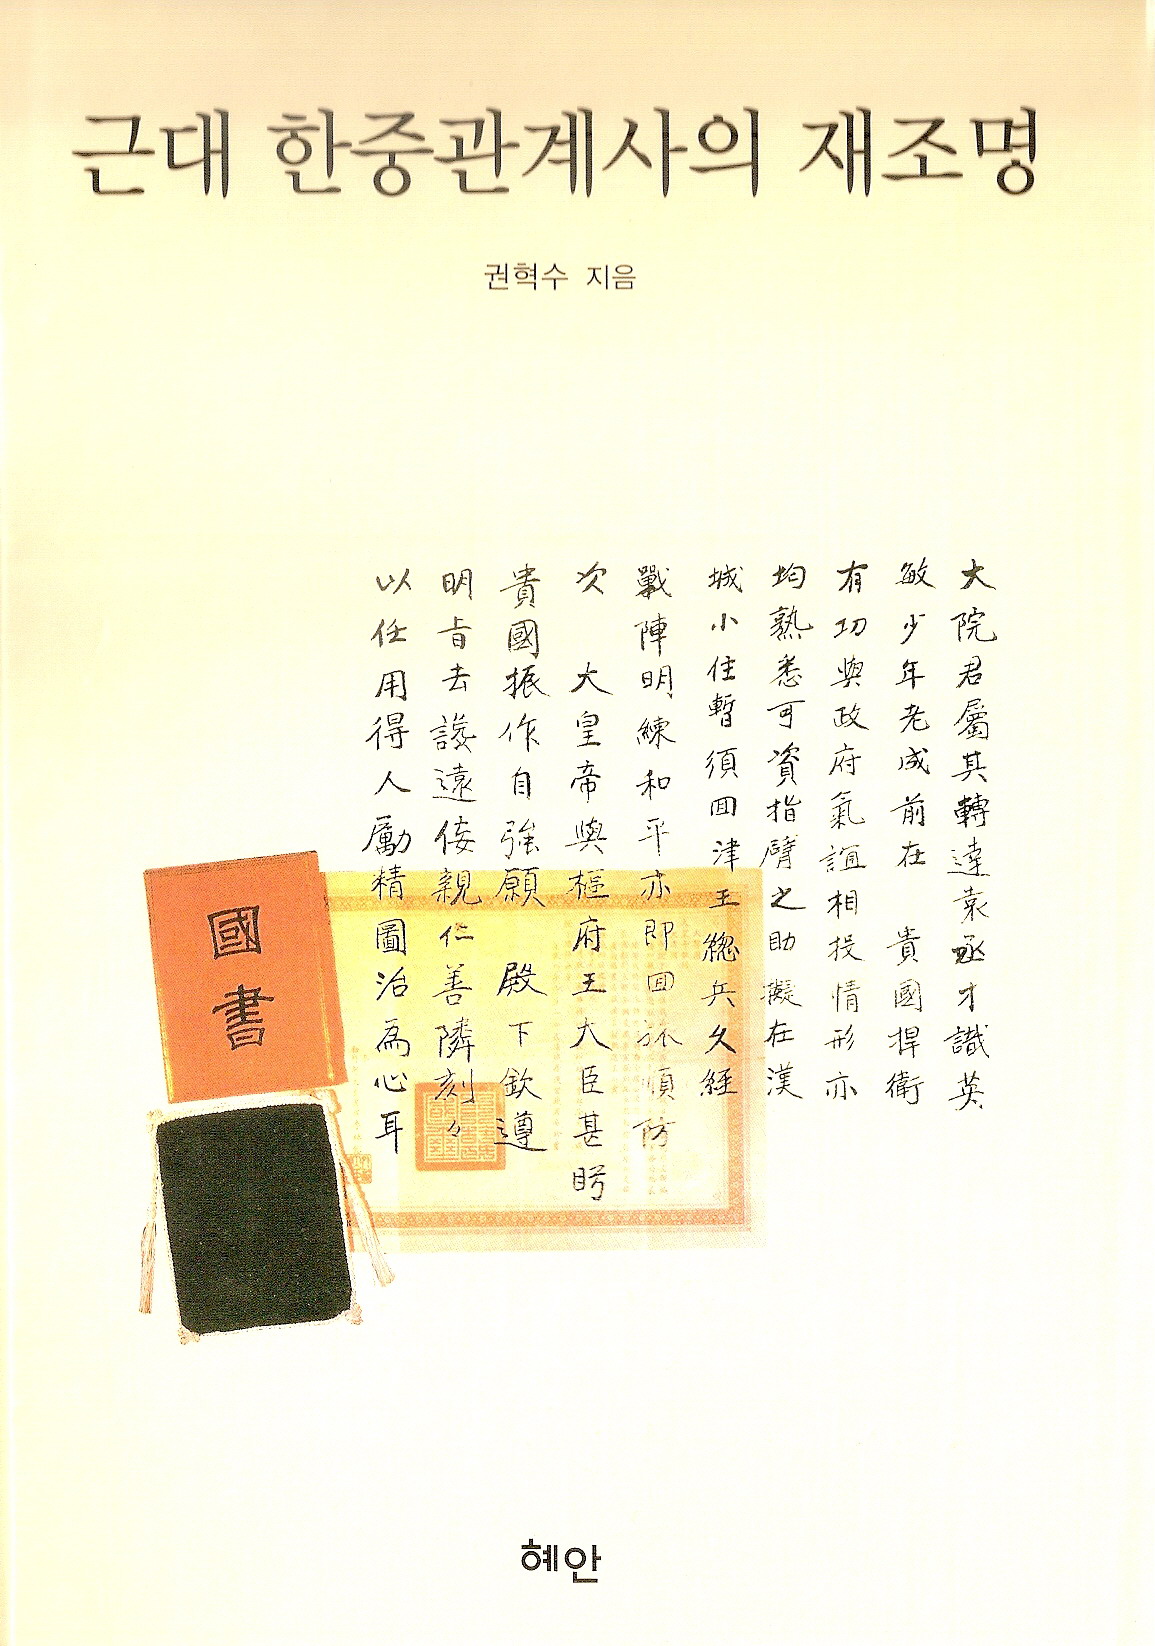 근대 한중관계사의 재조명
권혁수 지음
大院君屬其轉達袁丞才識英
敏少年老成前在 貴國捍衛
有功與政府氣誼相投情形亦
均熟悉可資指臂之助擬在漢
城小住暫須回津王總兵久經
戰陣明練和平亦即回旅順防
次 大皇帝與樞府王大臣甚盼
貴國振作自強願 殿下欽遵
明旨去讒遠佞親仁善隣刻々
以任用得人勵精圖治爲心耳
國書
혜안